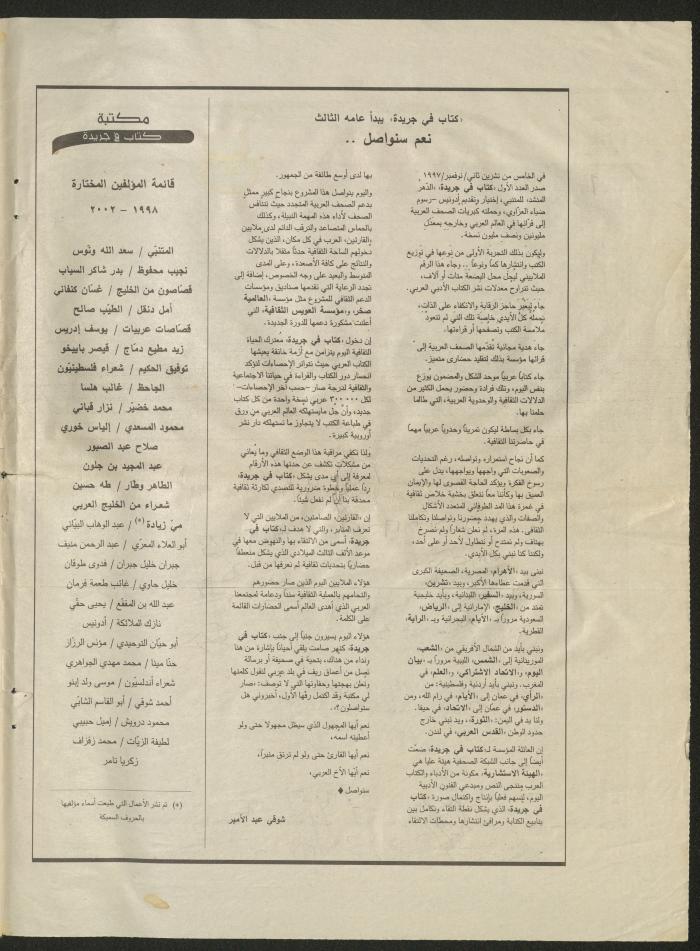 «كتاب في جريدة» يبدأ عامه الثالث
نعم سنواصل ..
في الخامس من تشرين ثاني/نوفمبر/١٩٩٧
صدر العدد الأول «كتاب في جريدة»، الدّهر
المنشد، للمتنبي، إختيار وتقديم أدونيس –رسوم
ضياء العزّاوي، وحملته كبريات الصحف العربية
إلى قرّائها في العالم العربي وخارجه بمعدّل
مليونين ونصف مليون نسخة.
وليكون بذلك التجربة الأولى من نوعها في توزيع
الكتب وانتشارها كماً ونوعاً .. وجاء هذا الرقم
الملاييني ليحلّ محل البضعة مئات أو آلاف،
حيث تتراوح معدلات نشر الكتاب الأدبي العربي.
جاء ليَعبُر حاجز الرقابة والانكفاء على الذات،
تحمله كلّ الأيدي خاصة تلك التي لم تتعود
ملامسة الكتب وتصفحها أو قراءتها.
جاء هدية مجانية تقدّمها الصحف العربية إلى
قرائها مؤسسة بذلك لتقليد حضاري متميز.
جاء كتاباً عربياً موحد الشكل والمضمون يوزع
بنفس اليوم، وتلك فرادة وحضور يحمل الكثير من
الدلالات الثقافية والوحدوية العربية، التي طالما
حلمنا بها.
جاء بكل بساطة ليكون تمريناً وحدوياً عربياً مهماً
في حاضرتنا الثقافية.
كما أن نجاح استمراره وتواصله، رغم التحديات
والصعوبات التي واجهها ويواجهها، يدل على
رسوخ الفكرة ويؤكد الحاجة القصوى لها والإيمان
العميق بها وكأننا معاً نتعلق بخشبة خلاص ثقافية
في غمرة هذا المد الطوفاني المتعدد الأشكال
والصفات والذي يهدد حضورنا وتواصلنا وتكاملنا
الثقافي. هذه المرة، لم نعلن شعاراً ولم نصرخ
بهتاف ولم نمتدح أو نتطاول لأحد أو على أحد،
ولكننا كنا نبني بكل الأيدي.
نبني بيد «الأهرام» المصرية، الصحيفة الكبرى
التي قدمت عطاءها الأكبر، وبيد «تشرين»
السورية، وبيد «السفير» اللبنانية، وبأيد خليجية
تمتد من «الخليج» الإماراتية إلى «الرياض»
السعودية مروراً بـ «الأيام» البحرانية وبـ «الراية»
القطرية.
ونبني بأيد من الشمال الأفريقي من «الشعب»
الموريتانية إلى «الشمس» الليبية مروراً بـ «بيان
اليوم» و«الاتحاد الاشتراكي» و«العلم» في
المغرب. ونبني بأيد أردنية وفلسطينية: من
«الرأي» في عمان إلى «الأيام» في رام الله، ومن
«الدستور» في عمّان إلى «الاتحاد» في حيفا.
ولنا يد في اليمن: «الثورة»، ويد نبني خارج
حدود الوطن «القدس العربي» في لندن.
إن العائلة المؤسسة لـ«كتاب في جريدة» ضمّت
أيضاً إلى جانب الشبكة الصحفية هيئة عليا هي
«الهيئة الاستشارية» مكونة من الأدباء والكتاب
العرب منتجي النص ومبدعي الفنون الأدبية
اليوم، ليُسهم فعلياً بإنتاج واكتمال صورة «كتاب
في جريدة» الذي يشكل نقطة التقاء وتكامل بين
ينابيع الكتابة ومرافئ انتشارها ومحطات الالتقاء
بها لدى أوسع طائفة من الجمهور.
واليوم يتواصل هذا المشروع بنجاح كبير ممثل
بدعم الصحف العربية المتجدد حيث تتنافس
الصحف لأداء هذه المهمة النبيلة، وكذلك
بالحماس المتصاعد والترقب الدائم لدى ملايين
«القارئين» العرب في كل مكان، الذين يشكل
دخولهم الساحة الثقافية حدثاً مثقلا بالدلالات
والنتائج على كافة الأصعدة، وعلى المدى
المتوسط والبعيد على وجه الخصوص، إضافة إلى
تجدد الرعاية التي تقدمها صناديق ومؤسسات
الدعم الثقافي للمشروع مثل مؤسسة «العالمية
صخر» و«مؤسسة العويس الثقافية» التي
أعلنت مشكورة دعمها للدورة الجديدة.
إن دخول «كتاب في جريدة» معترك الحياة
الثقافية اليوم يتزامن مع أزمة خانقة يعيشها
الكتاب العربي حيث تتواتر الإحصاءات لتؤكد
انحسار دور الكتاب والقراءة في حياتنا الاجتماعية
والثقافية لدرجة صار –حسب آخر الإحصاءات–
لكل ٣٠٠٠٠٠ عربي نسخة واحدة من كل كتاب
جديد، وأن جلّ مايستهلكه العالم العربي من ورق
في طباعة الكتب لا يتجاوز ما تستهلكه دار نشر
أوروبية كبيرة.
ولنا تكفي مراقبة هذا الوضع الثقافي وما يعاني
من مشكلات تكشف عن حدتها هذه الأرقام
لمعرفة إلى أي مدى يشكل «كتاب في جريدة»
رداً عملياً وخطوة ضرورية للتصدي لكارثة ثقافية
محدقة بنا إن لم نفعل شيئاً.
إن «القارئين» الصامتين، من الملايين التي لا
تعرف المنابر، والتي لا هدف لـ«كتاب في
جريدة» أسمى من الالتقاء بها والنهوض معها في
موعد الألف الثالث الميلادي الذي يشكل منعطفاً
حضارياً بتحديات ثقافية لم نعرفها من قبل.
هؤلاء الملايين اليوم الذين صار حضورهم
والتحامهم بالعملية الثقافية سنداً ودعامة لمجتمعنا
العربي الذي أهدى العالم أسمى الحضارات القائمة
على الكلمة.
هؤلاء اليوم يسيرون جنباً إلى جنب «كتاب في
جريدة» كنهر صامت يلقي أحياناً بإشارة من هنا
ونداء من هناك، بتحية في صحيفة أو برسالة
تصل من أعماق ريف في بلد عربي لتقول كلمتها
وتعلن بهجتها وحفاوتها التي لا توصف: «صار
لي مكتبة وقد اكتمل رفّها الأول، أخبروني هل
ستواصلون؟».
نعم أيها المجهول الذي سيظل مجهولا حتى ولو
أعطيته اسمه،
نعم أيها القارئ حتى ولو لم ترتق منبراً،
نعم أيها الأخ العربي،
سنواصل ♦
شوقي عبد الأمير
مكتبة
كتاب في جريدة
قائمة المؤلفين المختارة
١٩٩٨ – ٢٠٠٢
المتنبّي / سعد الله ونّوس
نجيب محفوظ / بدر شاكر السياب
قصّاصون من الخليج / غسّان كنفاني
أمل دنقل / الطيّب صالح
قصّاصات عربيات / يوسف إدريس
زيد مطيع دمّاج / قيصر باييخو
توفيق الحكيم / شعراء فلسطينيّون
الجاحظ / غالب هلسا
محمد خضيّر / نزار قباني
محمود المسعدي / إلياس خوري
صلاح عبد الصبور
عبد المجيد بن جلون
الطاهر وطار / طه حسين
شعراء من الخليج العربي
ميّ زيادة (*) / عبد الوهاب البيّاتي
أبو العلاء المعرّي / عبد الرحمن منيف
جبران خليل جبران / فدوى طوقان
خليل حاوي / غائب طعمة فرمان
عبد الله بن المقفّع / يحيى حقّي
نازك الملائكة / أدونيس
أبو حيّان التوحيدي / مؤنس الرزّاز
حنّا مينا / محمد مهدي الجواهري
شعراء أندلسيّون / موسى ولد إبنو
أحمد شوقي / أبو القاسم الشابّي
محمود درويش / إميل حبيبي
لطيفة الزيّات / محمد زفزاف
زكريا تامر
(*) تم نشر الأعمال التي طبعت أسماء مؤلفيها
بالحروف السميكة